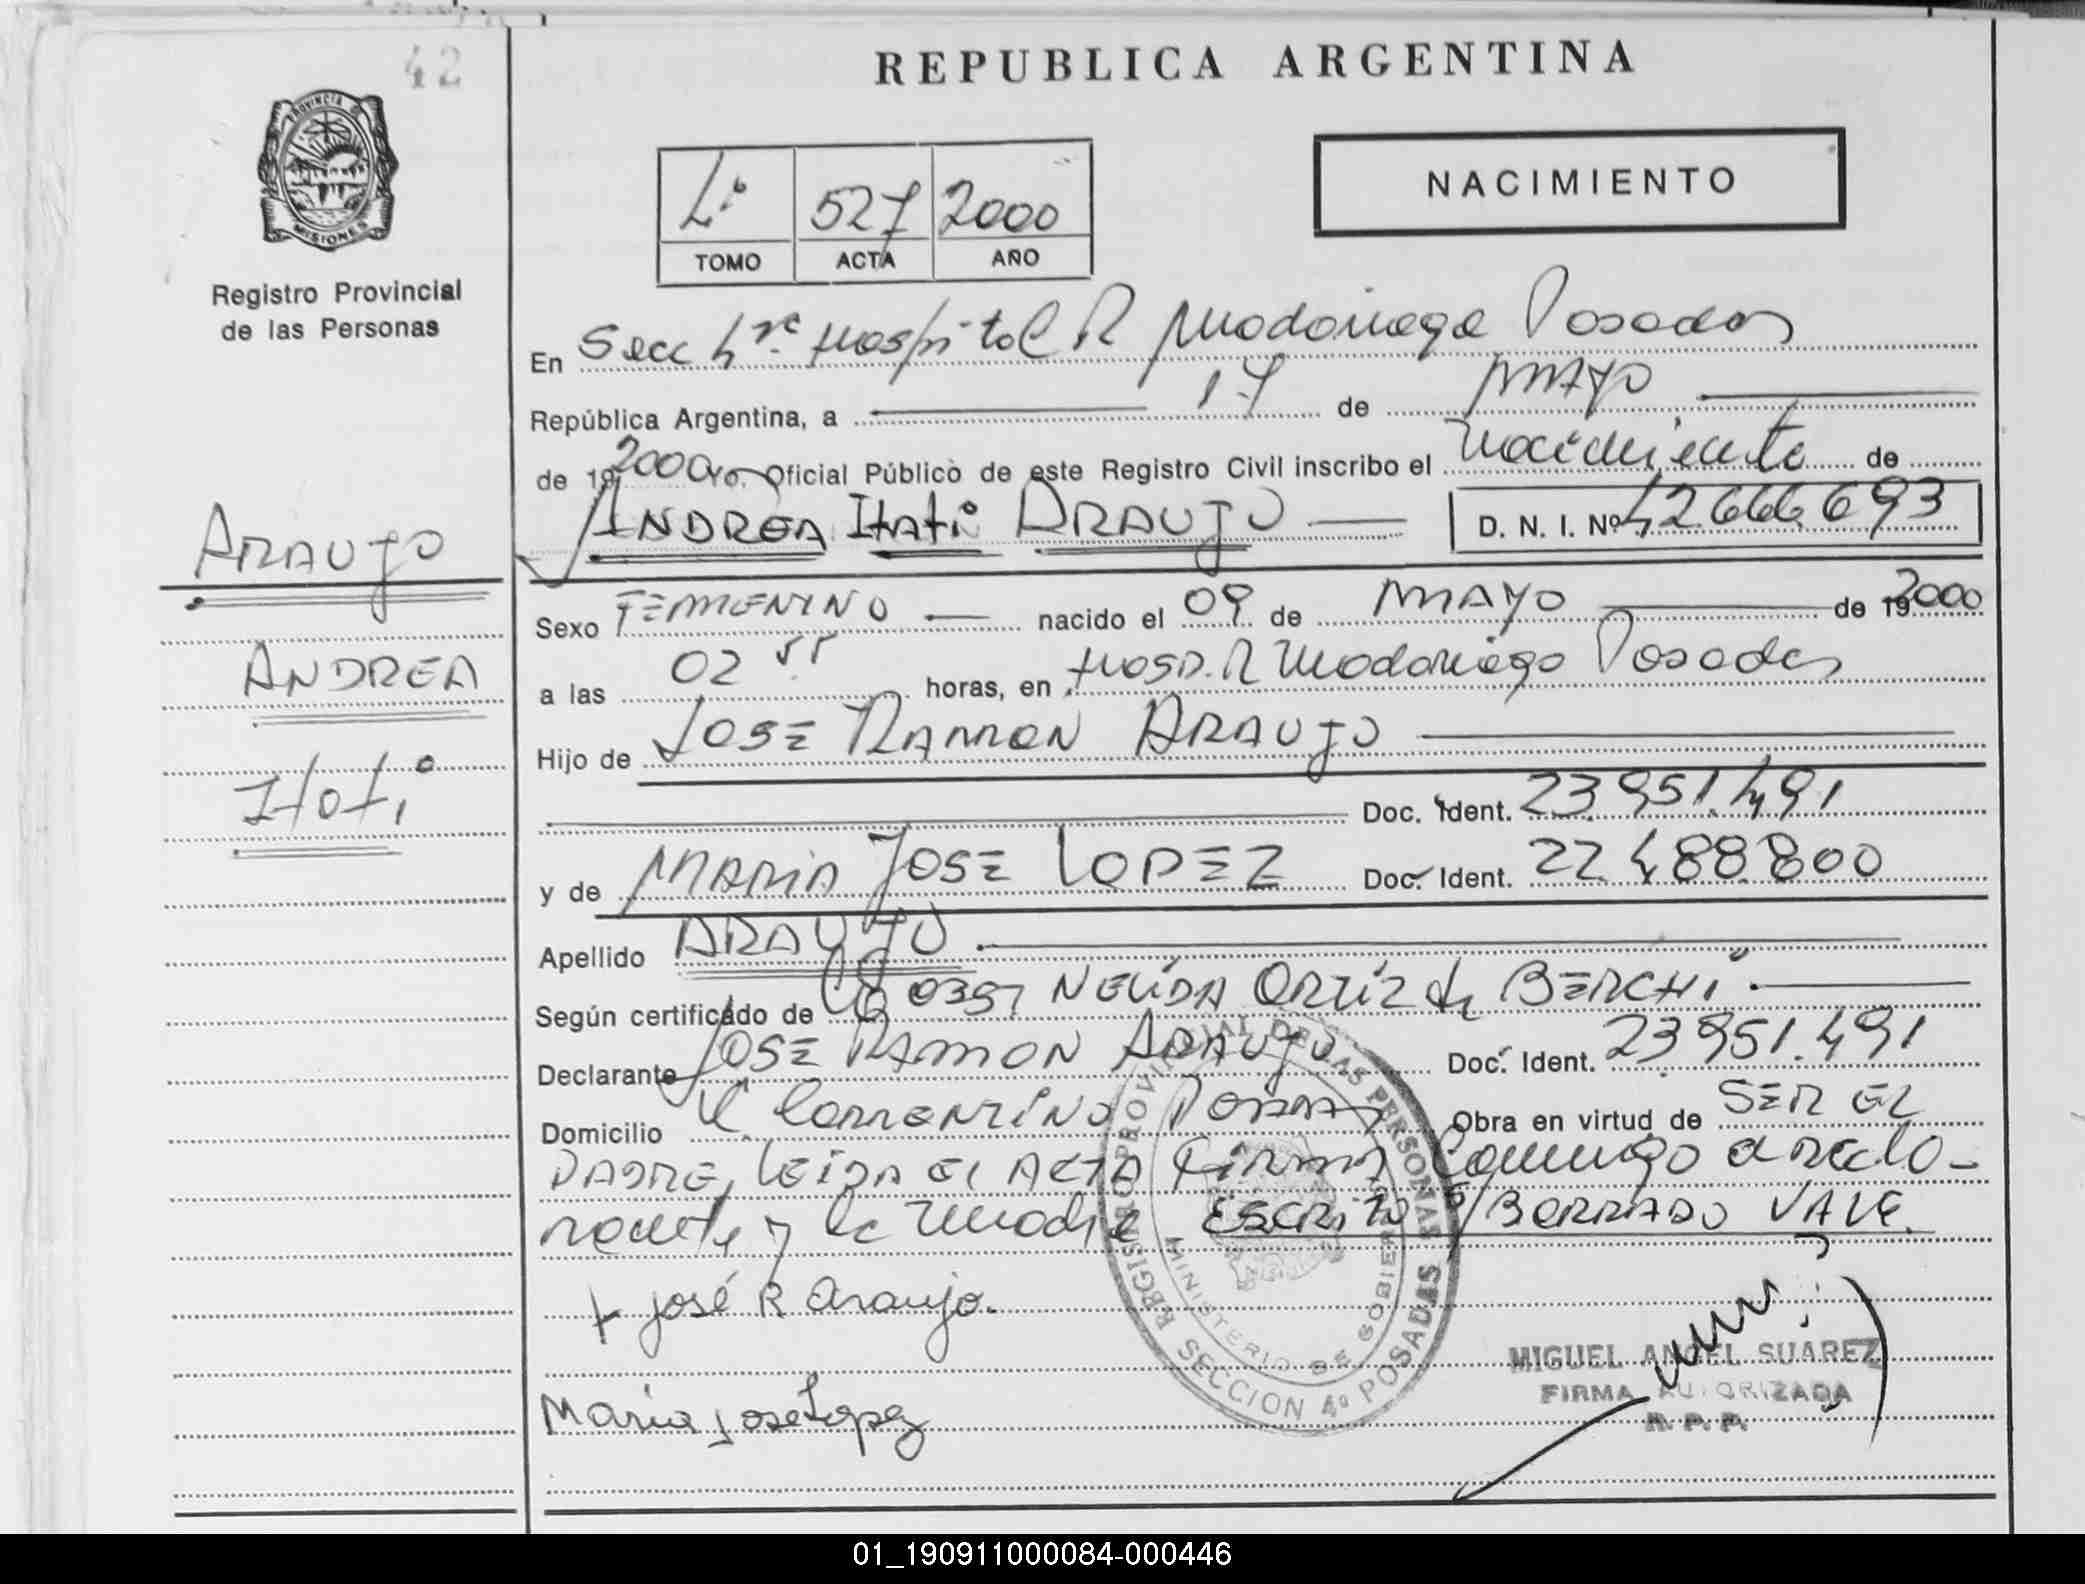 42
REPUBLICA ARGENTINA
PROVINCIA DE
MISIONES
Registro Provincial
de las Personas
NACIMIENTO
527 2000
TOMO ACTA AÑO
En Secc 4ta Hospital R Madariaga Posadas
República Argentina, a 17 de MAYO
de 19 2000 Yo. Oficial Público de este Registro Civil inscribo el nacimiento de
ANDREA Itatí ARAUJO D. N. I. Nº 42666693
ARAUJO
ANDREA
Itatí
Sexo FEMENINO nacido el 09 de MAYO de 19 2000
a las 02 55 horas, en Hosp. R Madariaga Posadas
Hijo de JOSE RAMON ARAUJO
Doc. Ident. 23.951.491
y de MARIA JOSE LOPEZ Doc. Ident. 22.488.800
Apellido ARAUJO
Según certificado de 0357 NELIDA ORTIZ de BERCHI
Declarante JOSE RAMON ARAUJO Doc. Ident. 23951.491
Domicilio CORRENTINO POSADAS Obra en virtud de SER EL
PADRE, LEIDA EL ACTA FIRMAN Conmigo el decla-
rante y la madre ESCRITO S/BORRADO VALE.
José R Araujo.
Maria Jose Lopez
REGISTRO PROVINCIAL DE LAS PERSONAS
MINISTERIO DE GOBIERNO
SECCION 4º POSADAS
MIGUEL ANGEL SUAREZ
FIRMA AUTORIZADA
R. P. P.
01_190911000084-000446